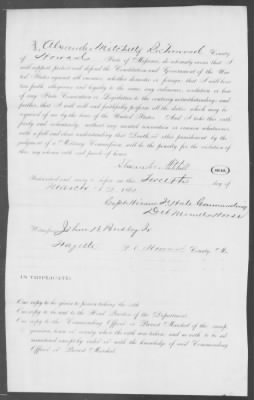 I, Alexander Mitchell, Richmond County
of Howard State of Missouri, do solemnly swear that I
will support, protect and defend the Constitution and Government of the
United States against all enemies, whether domestic or foreign; that I will bear
true faith, allegiance and loyalty to the same, any ordinance, resolution or law
of any State Convention or Legislature to the contrary notwithstanding; and
further, that I will well and faithfully perform all the duties which may be
required of me by the laws of the United States. And I take this oath
freely and voluntarily, without any mental reservation or evasion whatsoever,
with a full and clear understanding that Death, or other punishment by the
judgment of a Military Commission, will be the penalty for the violation of
this my solemn oath and parole of honor.
Alexander Mitchell SEAL
Subscribed and sworn to before me this Twelfth day of
March 186
Commanding
Witnesses John R
Fayette Howard County Mo.
IN TRIPLICATE:
One copy to be given to person taking the oath.
One copy to be sent to the Head Quarters of the Department.
One copy to the Commanding Officer or Provost Marshal of the camp
or county where the oath was taken, and as with to be ad
ministered except by order of with the knowledge of and Commanding
Officer or Provost Marshal.